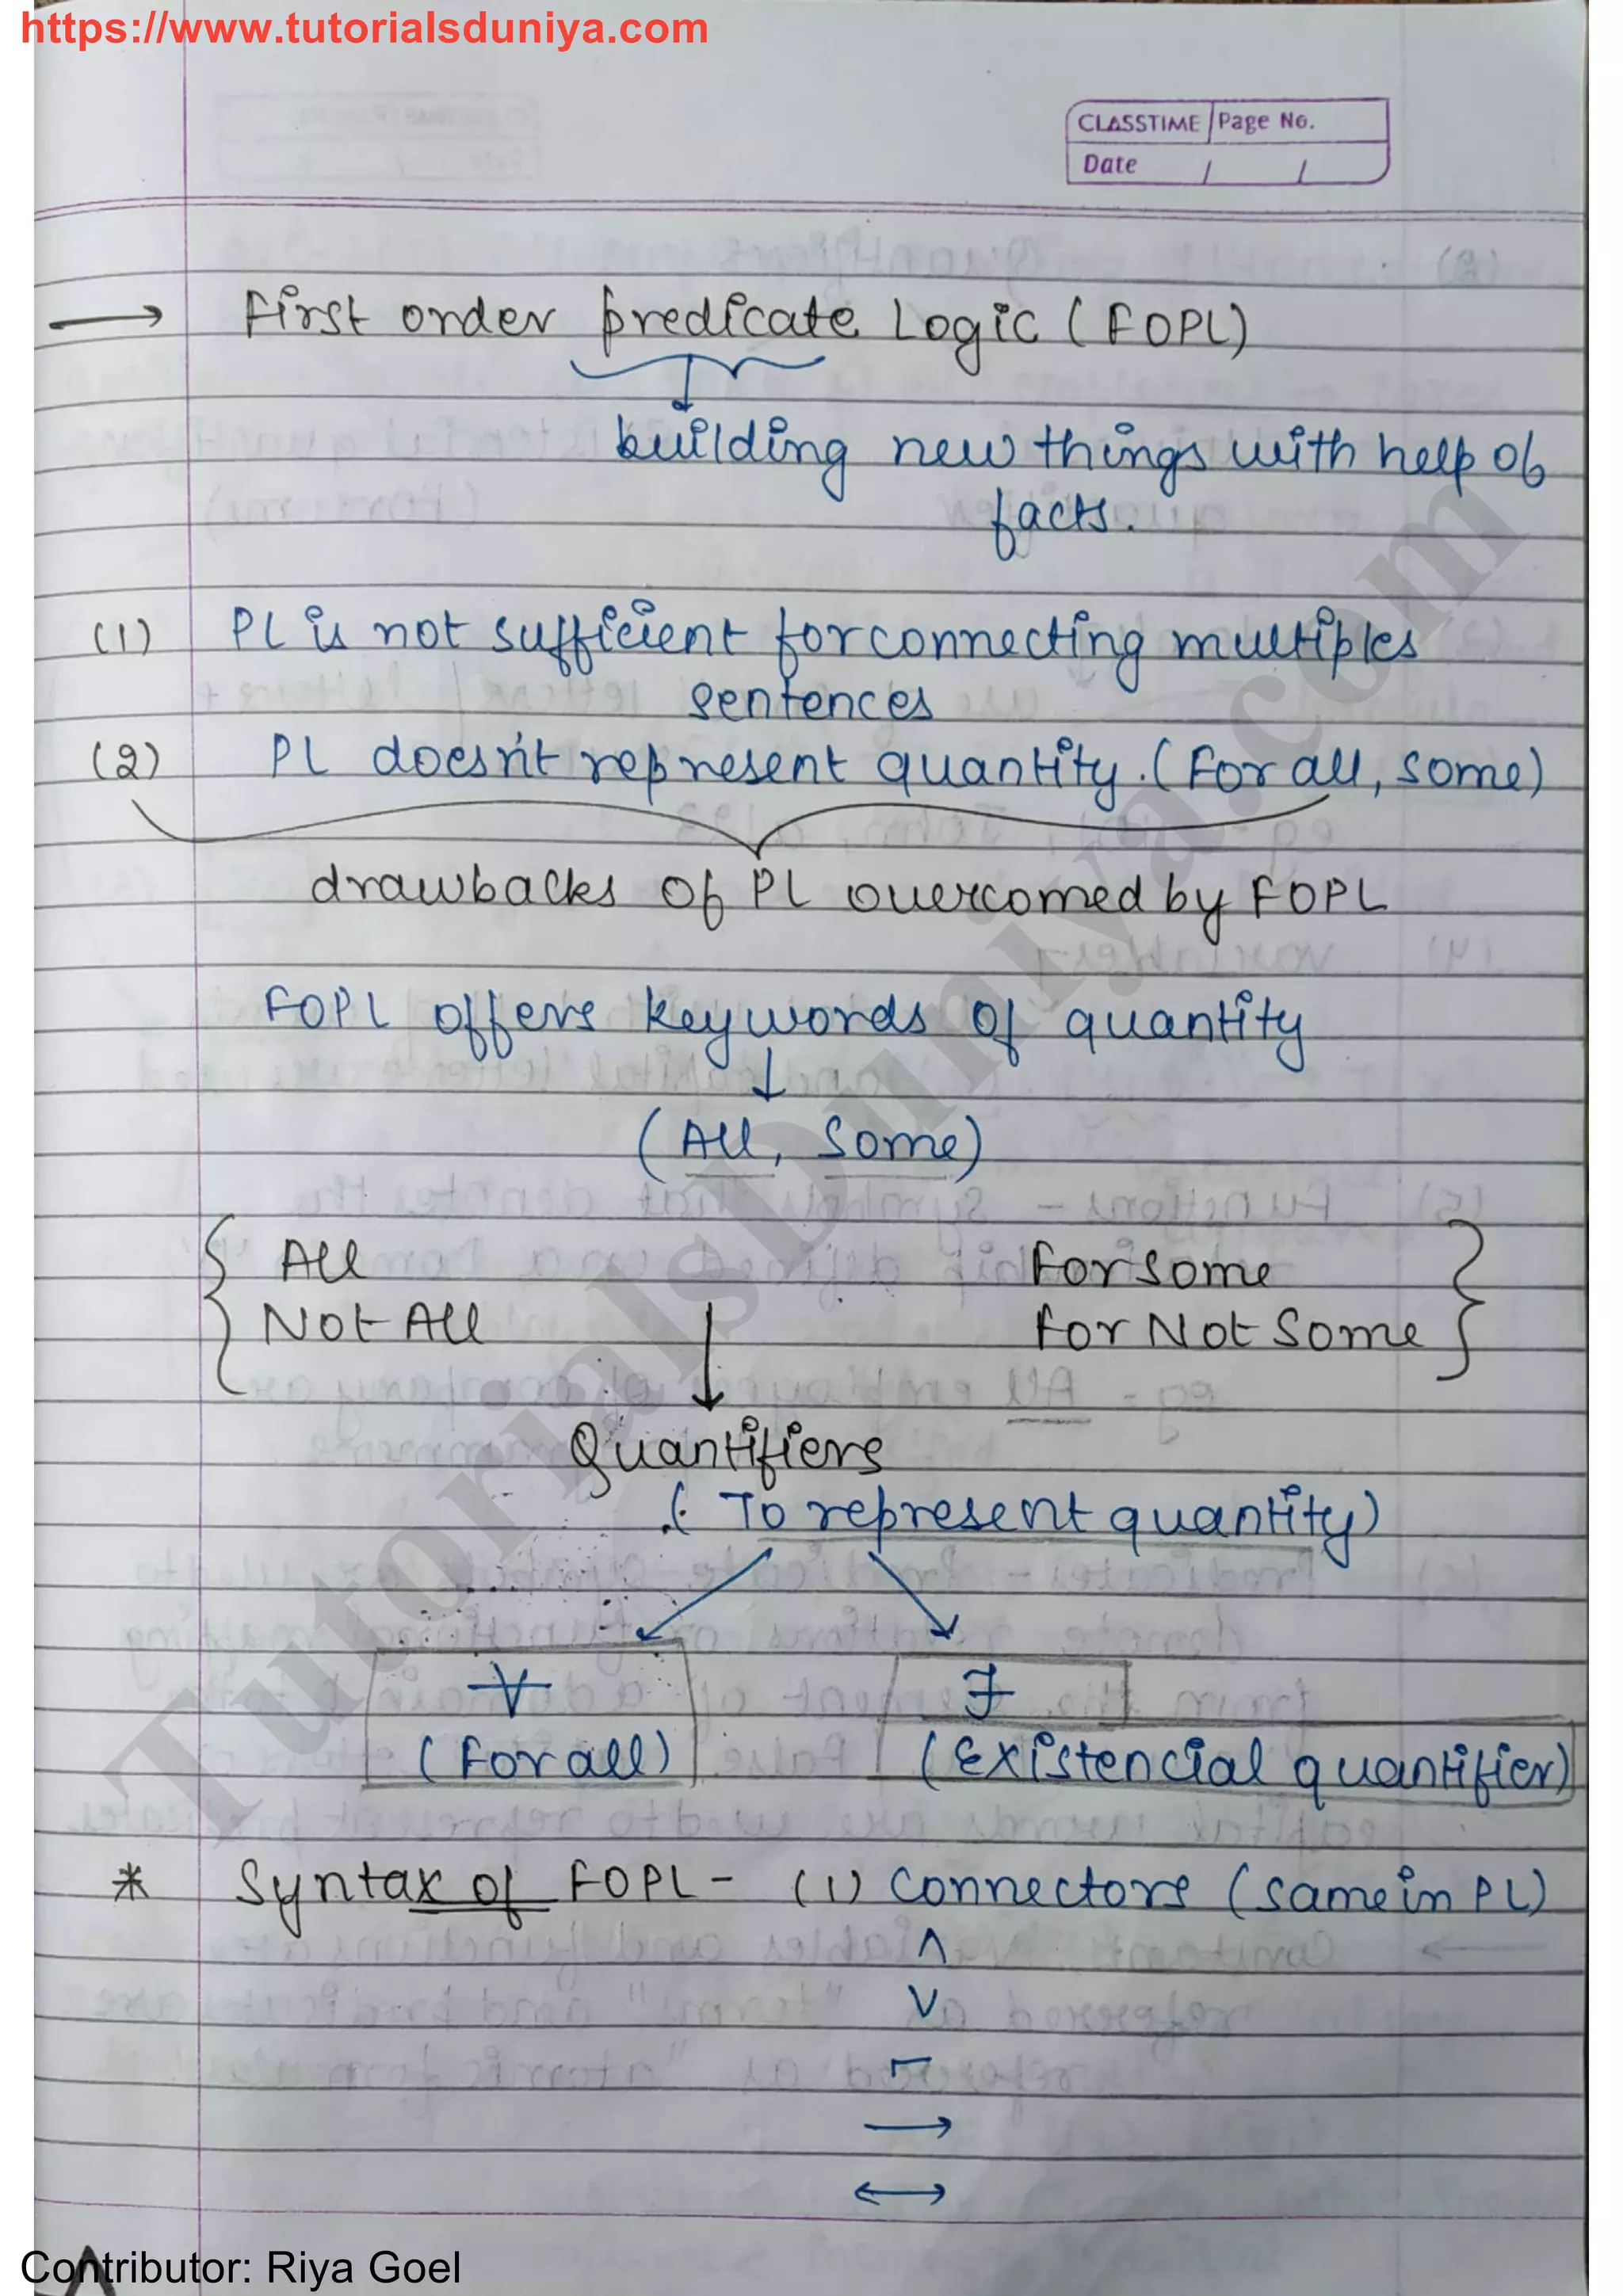 https://www.tutorialsduniya.com
CLASSTIME Page No.
Date / /
→ First order predicate Logic (FOPL)
building new things with help of
facts.
(1) PL is not sufficient for connecting multiples
sentences
(2) PL doesn't represent quantity. (For all, some)
drawbacks of PL overcomed by FOPL
FOPL offers keywords of quantity
↓
(All, Some)
All For some
Not All For Not Some
Quantifiers
(To represent quantity)
∀ ∃
(For all) (Existencial quantifier)
* Syntax of FOPL - (1) Connectors (same in PL)
∧
∨
¬
→
↔
TutorialsDuniya.com
Contributor: Riya Goel